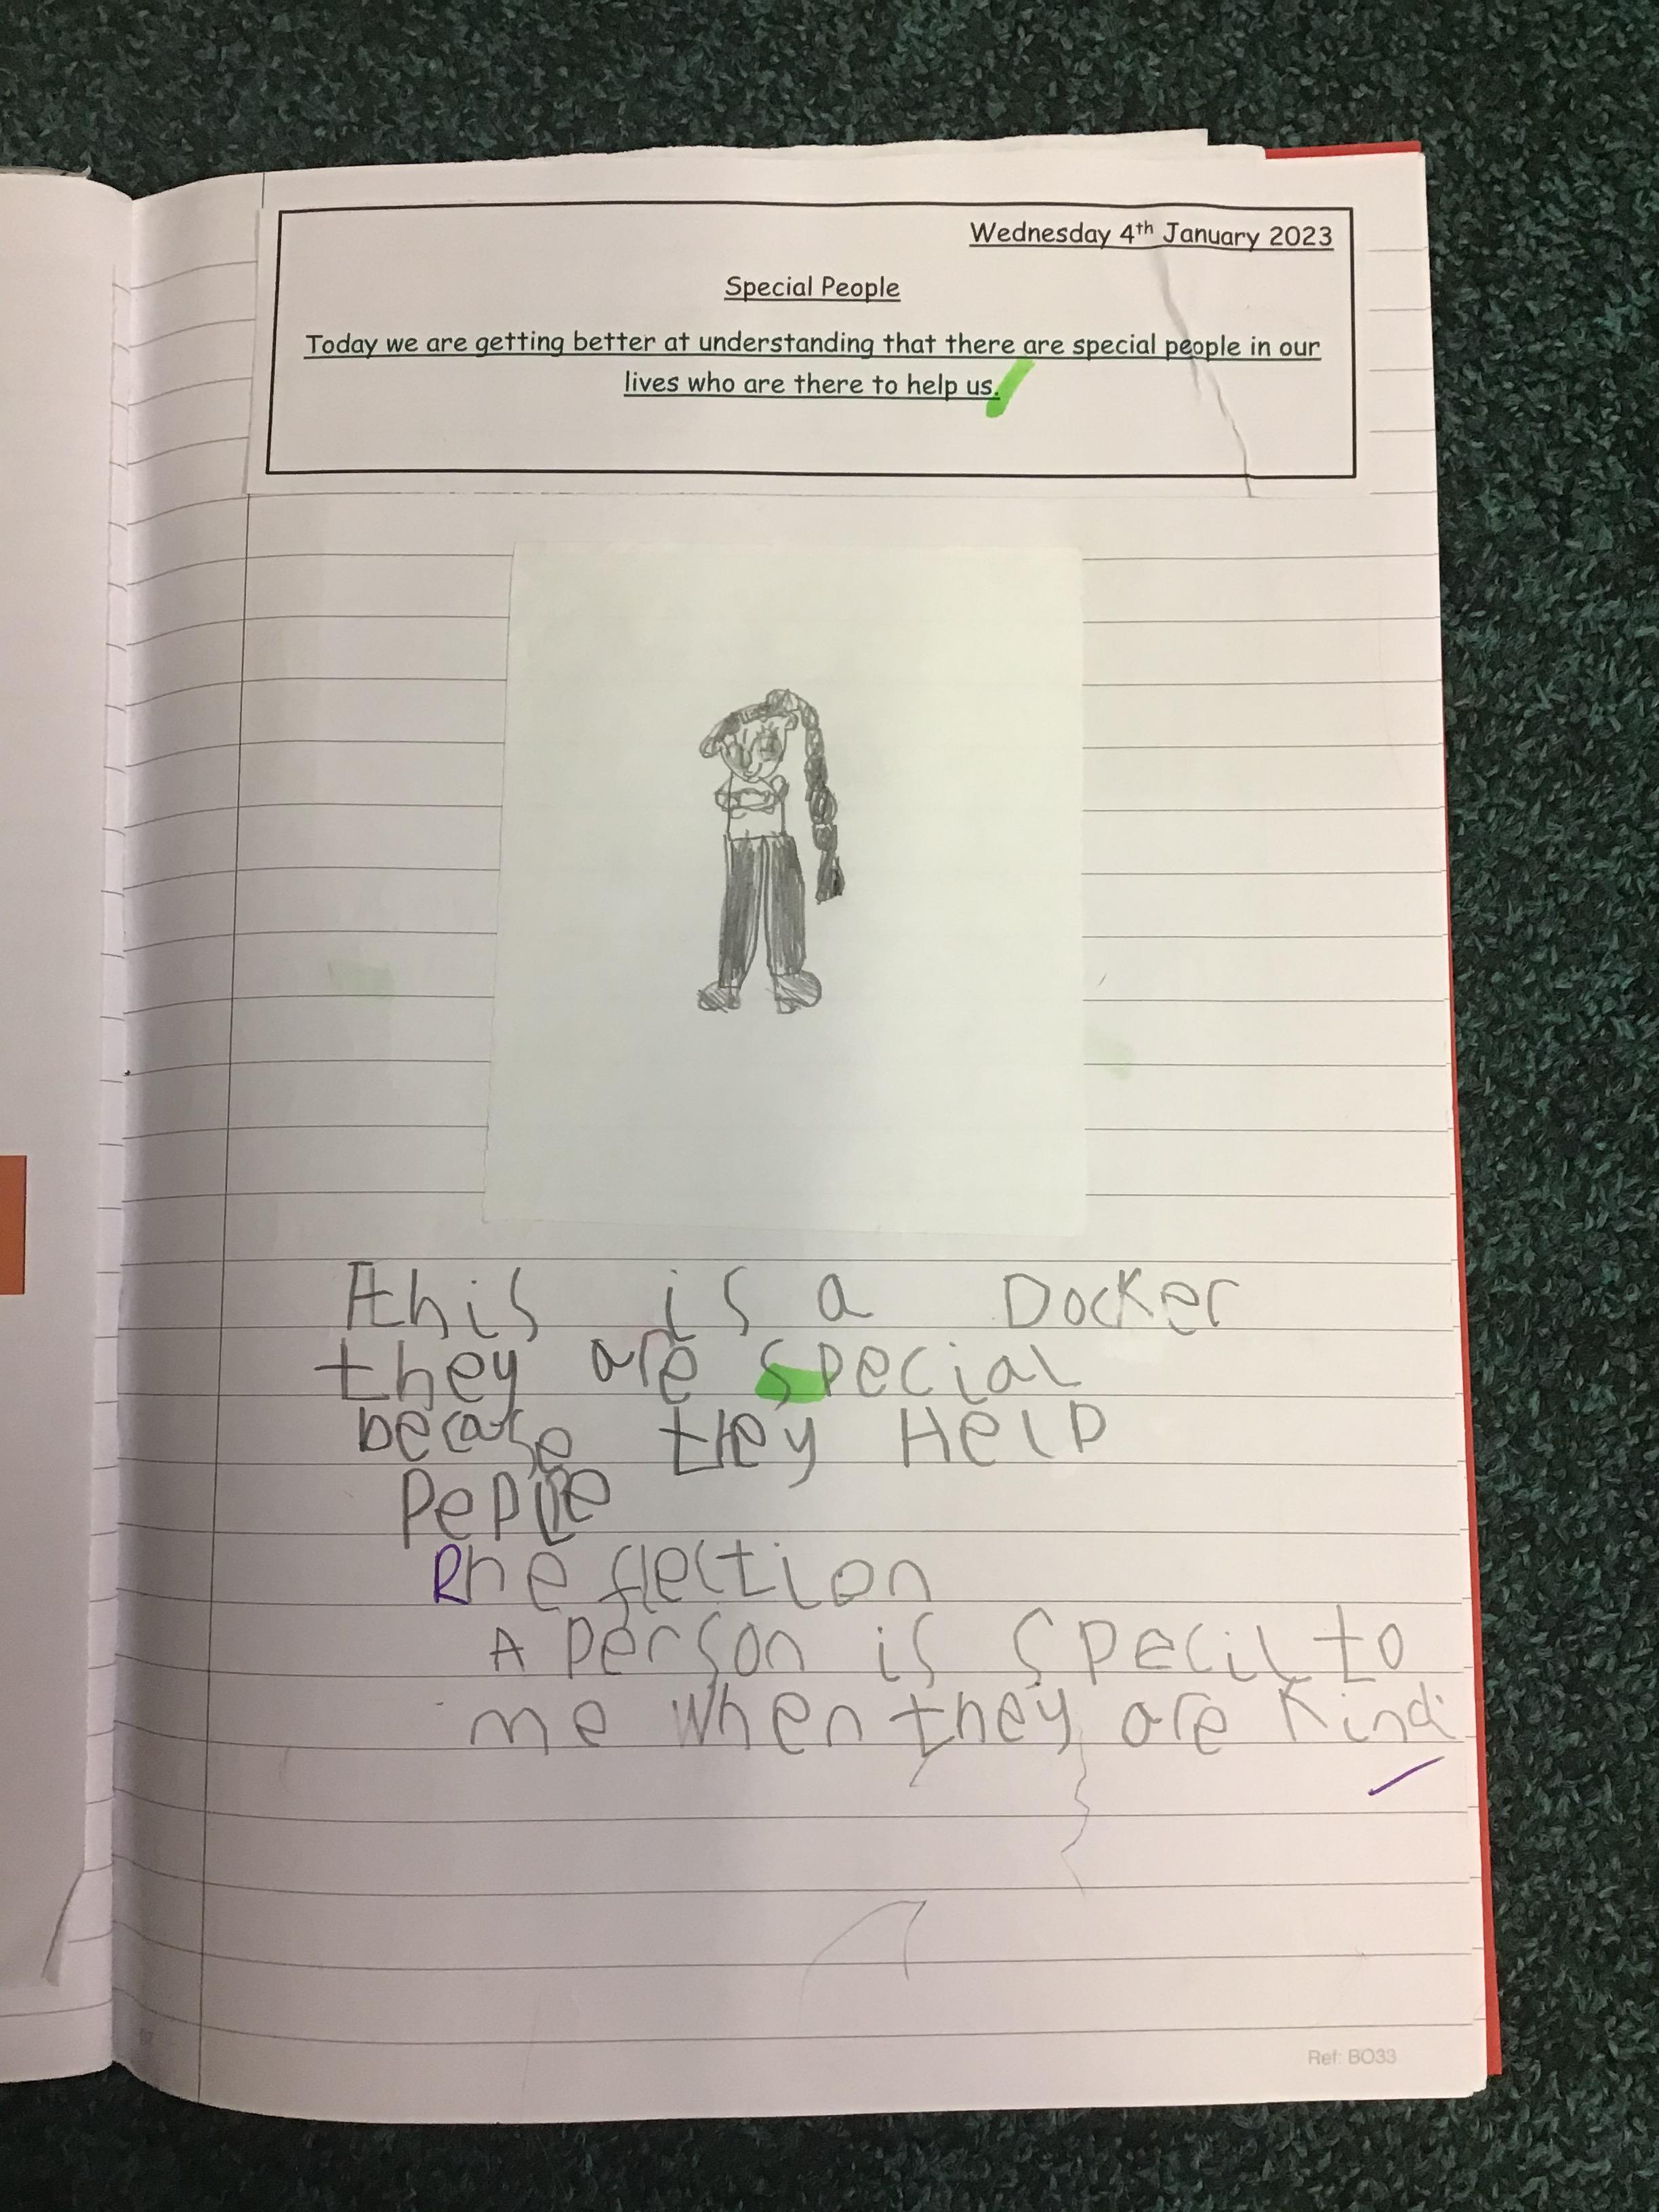 Wednesday 4th January 2023
Special People
Today we are getting better at understanding that there are special people in our
lives who are there to help us.
this is a Docker
they are special
becase they Help
Pepile
Rhe flection
A person is specil to
me when they are kind
Ref: BO33